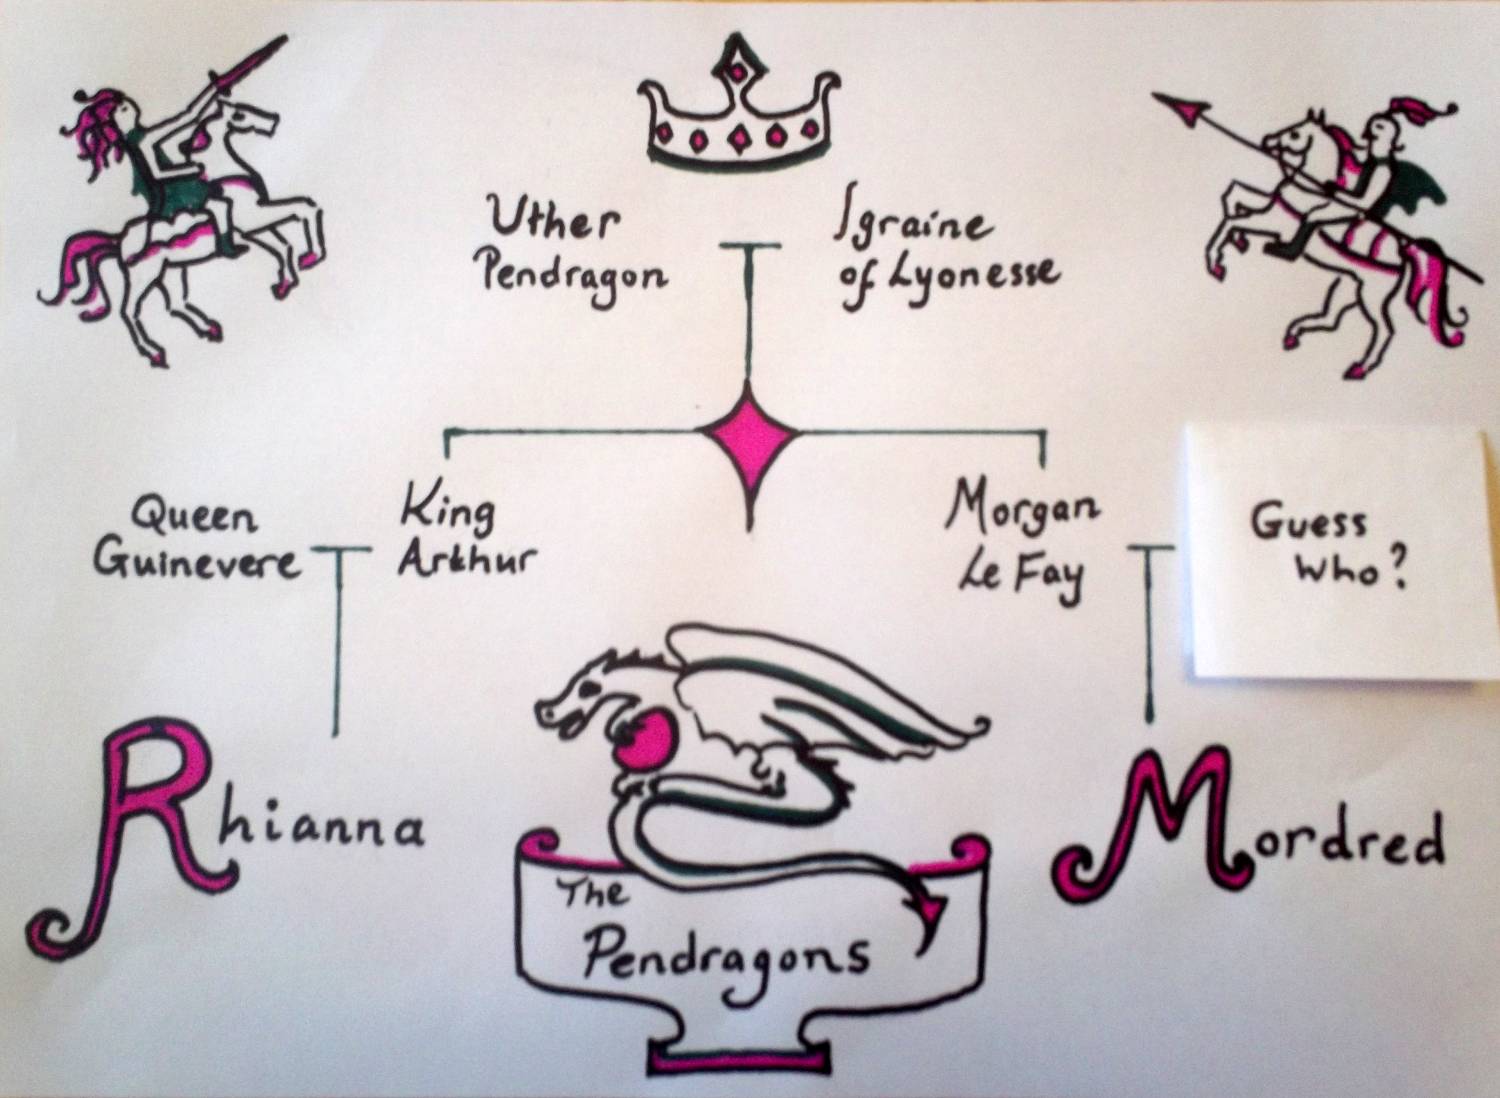 Uther
Pendragon
Igraine
of Lyonesse
Queen
Guinevere
King
Arthur
Morgan
Le Fay
Guess
Who?
Rhianna
Mordred
The
Pendragons